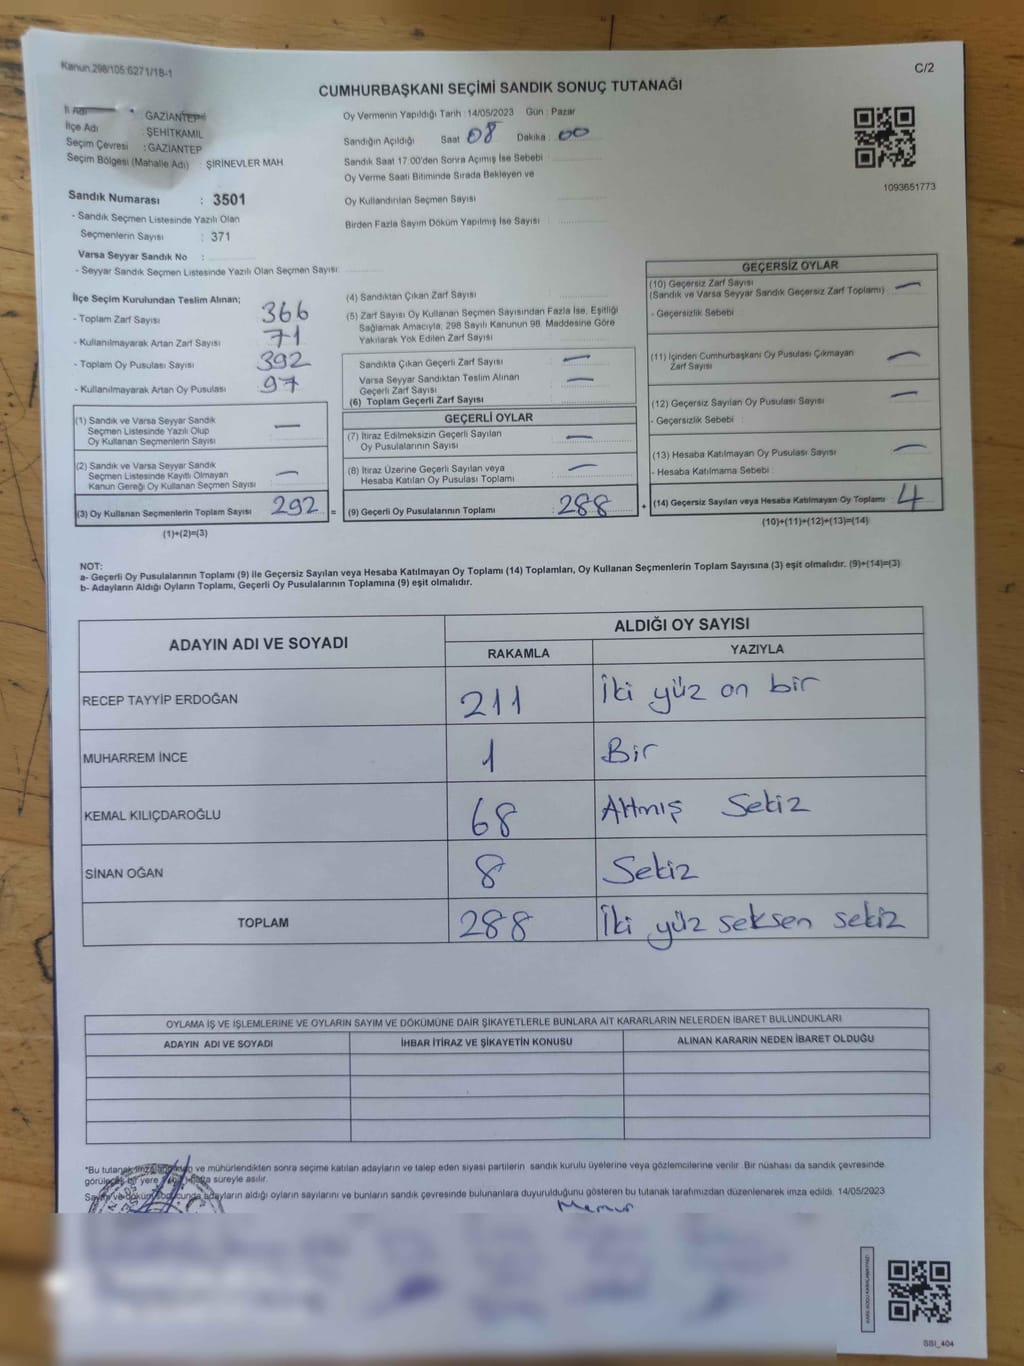 Kanun.298/105:6271/18-1
C/2
CUMHURBAŞKANI SEÇİMİ SANDIK SONUÇ TUTANAĞI
İl Adı : GAZİANTEP
İlçe Adı : ŞEHİTKAMİL
Seçim Çevresi : GAZİANTEP
Seçim Bölgesi (Mahalle Adı) : ŞİRİNEVLER MAH
Sandık Numarası : 3501
- Sandık Seçmen Listesinde Yazılı Olan
Seçmenlerin Sayısı : 371
Varsa Seyyar Sandık No :
- Seyyar Sandık Seçmen Listesinde Yazılı Olan Seçmen Sayısı:
Oy Vermenin Yapıldığı Tarih :14/05/2023 Gün : Pazar
Sandığın Açıldığı Saat 08 Dakika : 00
Sandık Saat 17.00'den Sonra Açımış İse Sebebi :
Oy Verme Saati Bitiminde Sırada Bekleyen ve
Oy Kullandırılan Seçmen Sayısı
Birden Fazla Sayım Döküm Yapılmış İse Sayısı :
1093651773
İlçe Seçim Kurulundan Teslim Alınan;
- Toplam Zarf Sayısı 366
- Kullanılmayarak Artan Zarf Sayısı 71
- Toplam Oy Pusulası Sayısı 392
- Kullanılmayarak Artan Oy Pusulası 97
(1) Sandık ve Varsa Seyyar Sandık
Seçmen Listesinde Yazılı Olup
Oy Kullanan Seçmenlerin Sayısı —
(2) Sandık ve Varsa Seyyar Sandık
Seçmen Listesinde Kayıtlı Olmayan
Kanun Gereği Oy Kullanan Seçmen Sayısı —
(3) Oy Kullanan Seçmenlerin Toplam Sayısı 292 =
(1)+(2)=(3)
(4) Sandıktan Çıkan Zarf Sayısı :
(5) Zarf Sayısı Oy Kullanan Seçmen Sayısından Fazla İse, Eşitliği
Sağlamak Amacıyla, 298 Sayılı Kanunun 98. Maddesine Göre
Yakılarak Yok Edilen Zarf Sayısı
Sandıkta Çıkan Geçerli Zarf Sayısı —
Varsa Seyyar Sandıktan Teslim Alınan
Geçerli Zarf Sayısı —
(6) Toplam Geçerli Zarf Sayısı
GEÇERLİ OYLAR
(7) İtiraz Edilmeksizin Geçerli Sayılan
Oy Pusulalarının Sayısı —
(8) İtiraz Üzerine Geçerli Sayılan veya
Hesaba Katılan Oy Pusulası Toplamı —
(9) Geçerli Oy Pusulalarının Toplamı : 288 +
GEÇERSİZ OYLAR
(10) Geçersiz Zarf Sayısı
(Sandık ve Varsa Seyyar Sandık Geçersiz Zarf Toplamı) —
- Geçersizlik Sebebi :
(11) İçinden Cumhurbaşkanı Oy Pusulası Çıkmayan
Zarf Sayısı —
(12) Geçersiz Sayılan Oy Pusulası Sayısı —
- Geçersizlik Sebebi :
(13) Hesaba Katılmayan Oy Pusulası Sayısı —
- Hesaba Katılmama Sebebi :
(14) Geçersiz Sayılan veya Hesaba Katılmayan Oy Toplamı : 4
(10)+(11)+(12)+(13)=(14)
NOT:
a- Geçerli Oy Pusulalarının Toplamı (9) ile Geçersiz Sayılan veya Hesaba Katılmayan Oy Toplamı (14) Toplamları, Oy Kullanan Seçmenlerin Toplam Sayısına (3) eşit olmalıdır. (9)+(14)=(3)
b- Adayların Aldığı Oyların Toplamı, Geçerli Oy Pusulalarının Toplamına (9) eşit olmalıdır.
ADAYIN ADI VE SOYADI
ALDIĞI OY SAYISI
RAKAMLA YAZIYLA
RECEP TAYYİP ERDOĞAN 211 İki yüz on bir
MUHARREM İNCE 1 Bir
KEMAL KILIÇDAROĞLU 68 Altmış Sekiz
SİNAN OĞAN 8 Sekiz
TOPLAM 288 İki yüz seksen sekiz
OYLAMA İŞ VE İŞLEMLERİNE VE OYLARIN SAYIM VE DÖKÜMÜNE DAİR ŞİKAYETLERLE BUNLARA AİT KARARLARIN NELERDEN İBARET BULUNDUKLARI
ADAYIN ADI VE SOYADI İHBAR İTİRAZ VE ŞİKAYETİN KONUSU ALINAN KARARIN NEDEN İBARET OLDUĞU
*Bu tutanak ve mühürlendikten sonra seçime katılan adayların ve talep eden siyasi partilerin sandık kurulu üyelerine veya gözlemcilerine verilir. Bir nüshası da sandık çevresinde
görülecek bir yere süreyle asılır.
Sayım ve döküm sonucunda adayların aldığı oyların sayılarını ve bunların sandık çevresinde bulunanlara duyurulduğunu gösteren bu tutanak tarafımızdan düzenlenerek imza edildi. 14/05/2023
Memur
SBI_404